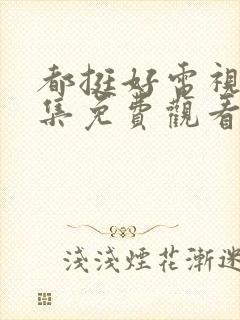 都挺好電視
集免費觀看
淺淺煙花漸迷